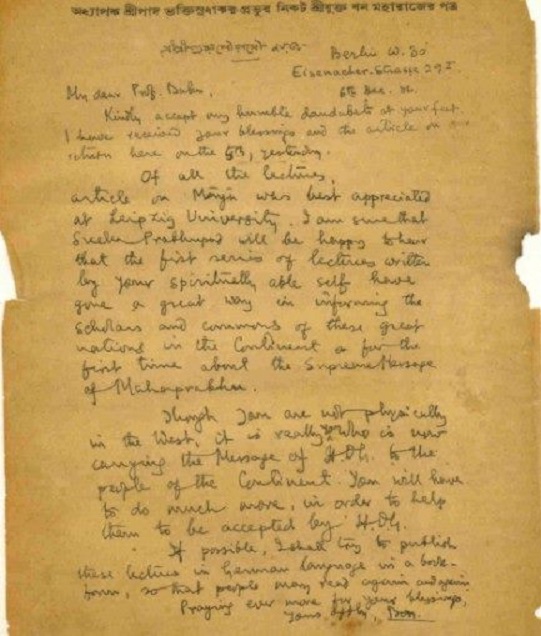 অধ্যাপক শ্রীপাদ ভক্তিসুধাকর প্রভুর নিকট শ্রীযুক্ত বন মহারাজের পত্র
Berlin W. 30
Eisenacher-Strasse 29 I
6th Dec. 34.
My dear Prof. Babu,
Kindly accept my humble dandabats at your feet.
I have received your blessings and the article on
return here on the 5th, yesterday.
Of all the lectures,
article on Maya was best appreciated
at Leipzig University. I am sure that
Sreela Prabhupad will be happy to hear
that the first series of lectures written
by your spiritually able self have
gone a great way in informing the
scholars and commons of these great
nations in the Continent for the
first time about the Supreme Message
of Mahaprabhu.
Though you are not physically
in the West, it is really you who is now
carrying the Message of H.Dh. to the
people of the Continent. You will have
to do much more, in order to help
them to be accepted by H.Dh.
If possible, I shall try to publish
these lectures in German language in a book-
form, so that people may read again and again
Praying ever more for your blessings,
Yours affly, Bon.